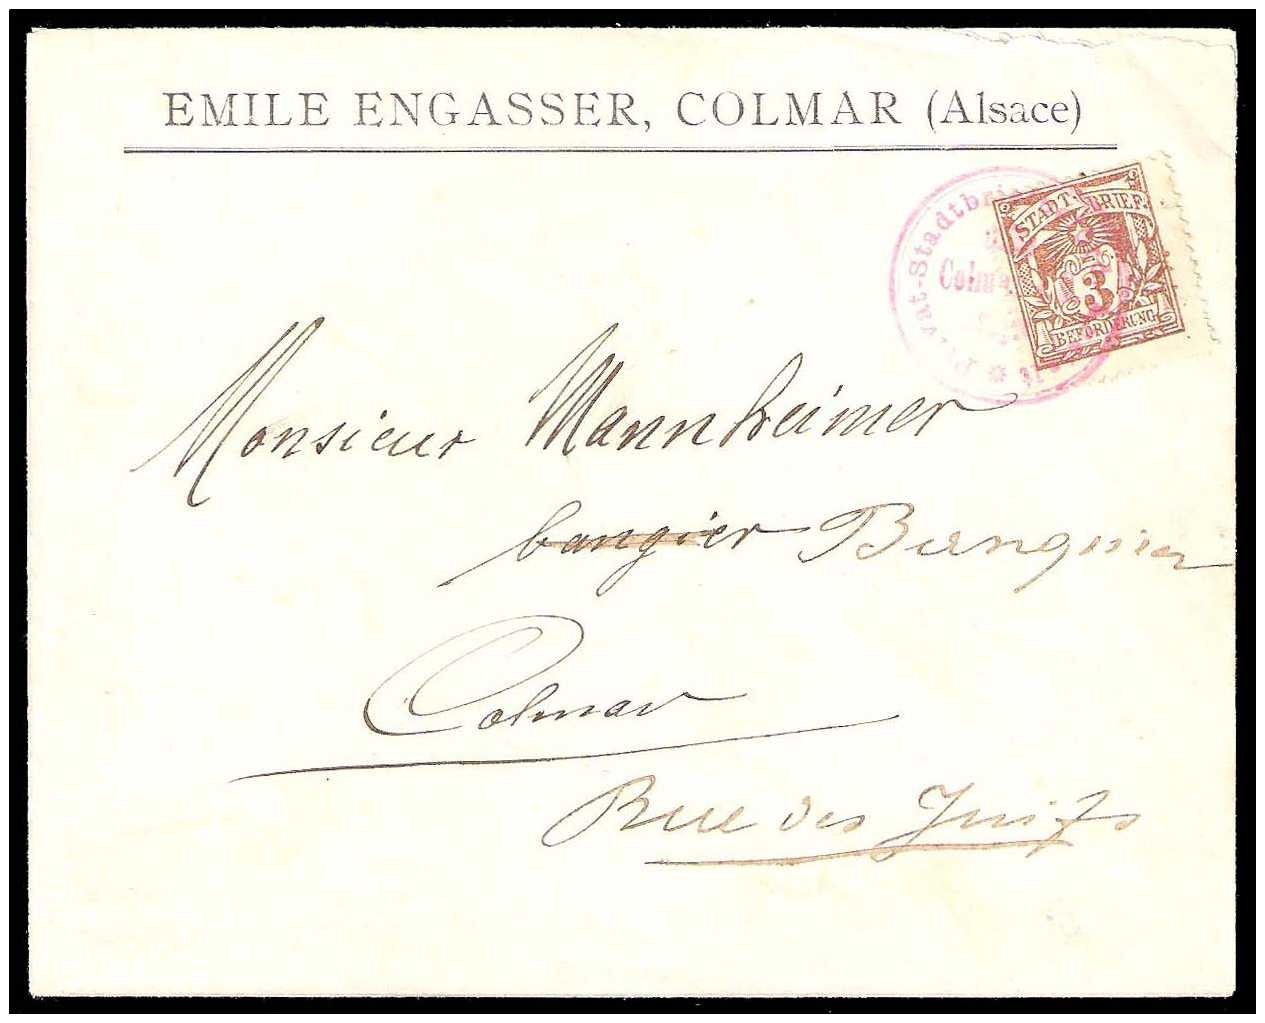 EMILE ENGASSER, COLMAR (Alsace)
STADT-BRIEF-
3
BEFÖRDERUNG
Monsieur Mannheimer
bangier Banquier
Colmar
Rue des Juifs